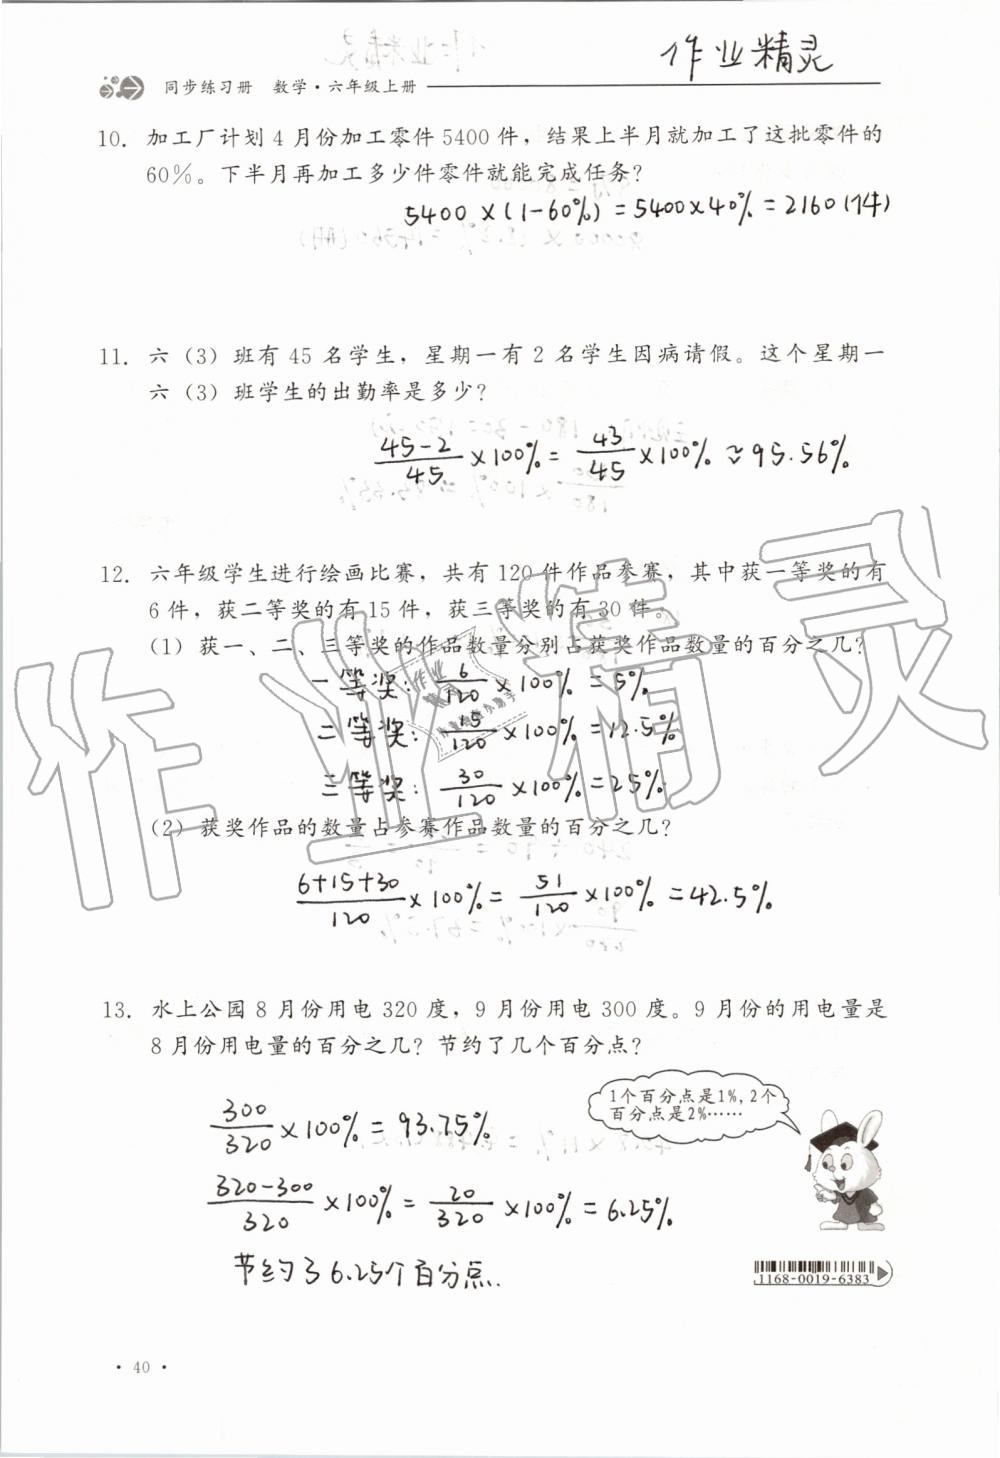 作业精灵
同步练习册 数学·六年级上册
10. 加工厂计划 4 月份加工零件 5400 件，结果上半月就加工了这批零件的
60%。下半月再加工多少件零件就能完成任务？
5400×(1-60%)=5400×40%=2160(件)
11. 六（3）班有 45 名学生，星期一有 2 名学生因病请假。这个星期一
六（3）班学生的出勤率是多少？
45-2/45 ×100%= 43/45 ×100% ≈95.56%
12. 六年级学生进行绘画比赛，共有 120 件作品参赛，其中获一等奖的有
6 件，获二等奖的有 15 件，获三等奖的有 30 件。
（1）获一、二、三等奖的作品数量分别占获奖作品数量的百分之几？
一等奖: 6/120 ×100% =5%
二等奖: 15/120 ×100% =12.5%
三等奖: 30/120 ×100% =25%
（2）获奖作品的数量占参赛作品数量的百分之几？
6+15+30/120 ×100%= 51/120 ×100% =42.5%
13. 水上公园 8 月份用电 320 度，9 月份用电 300 度。9 月份的用电量是
8 月份用电量的百分之几？节约了几个百分点？
1个百分点是1%，2个
百分点是2%……
300/320 ×100% =93.75%
320-300/320 ×100% = 20/320 ×100% =6.25%
节约了6.25个百分点.
1168-0019-6383
· 40 ·
作业精灵